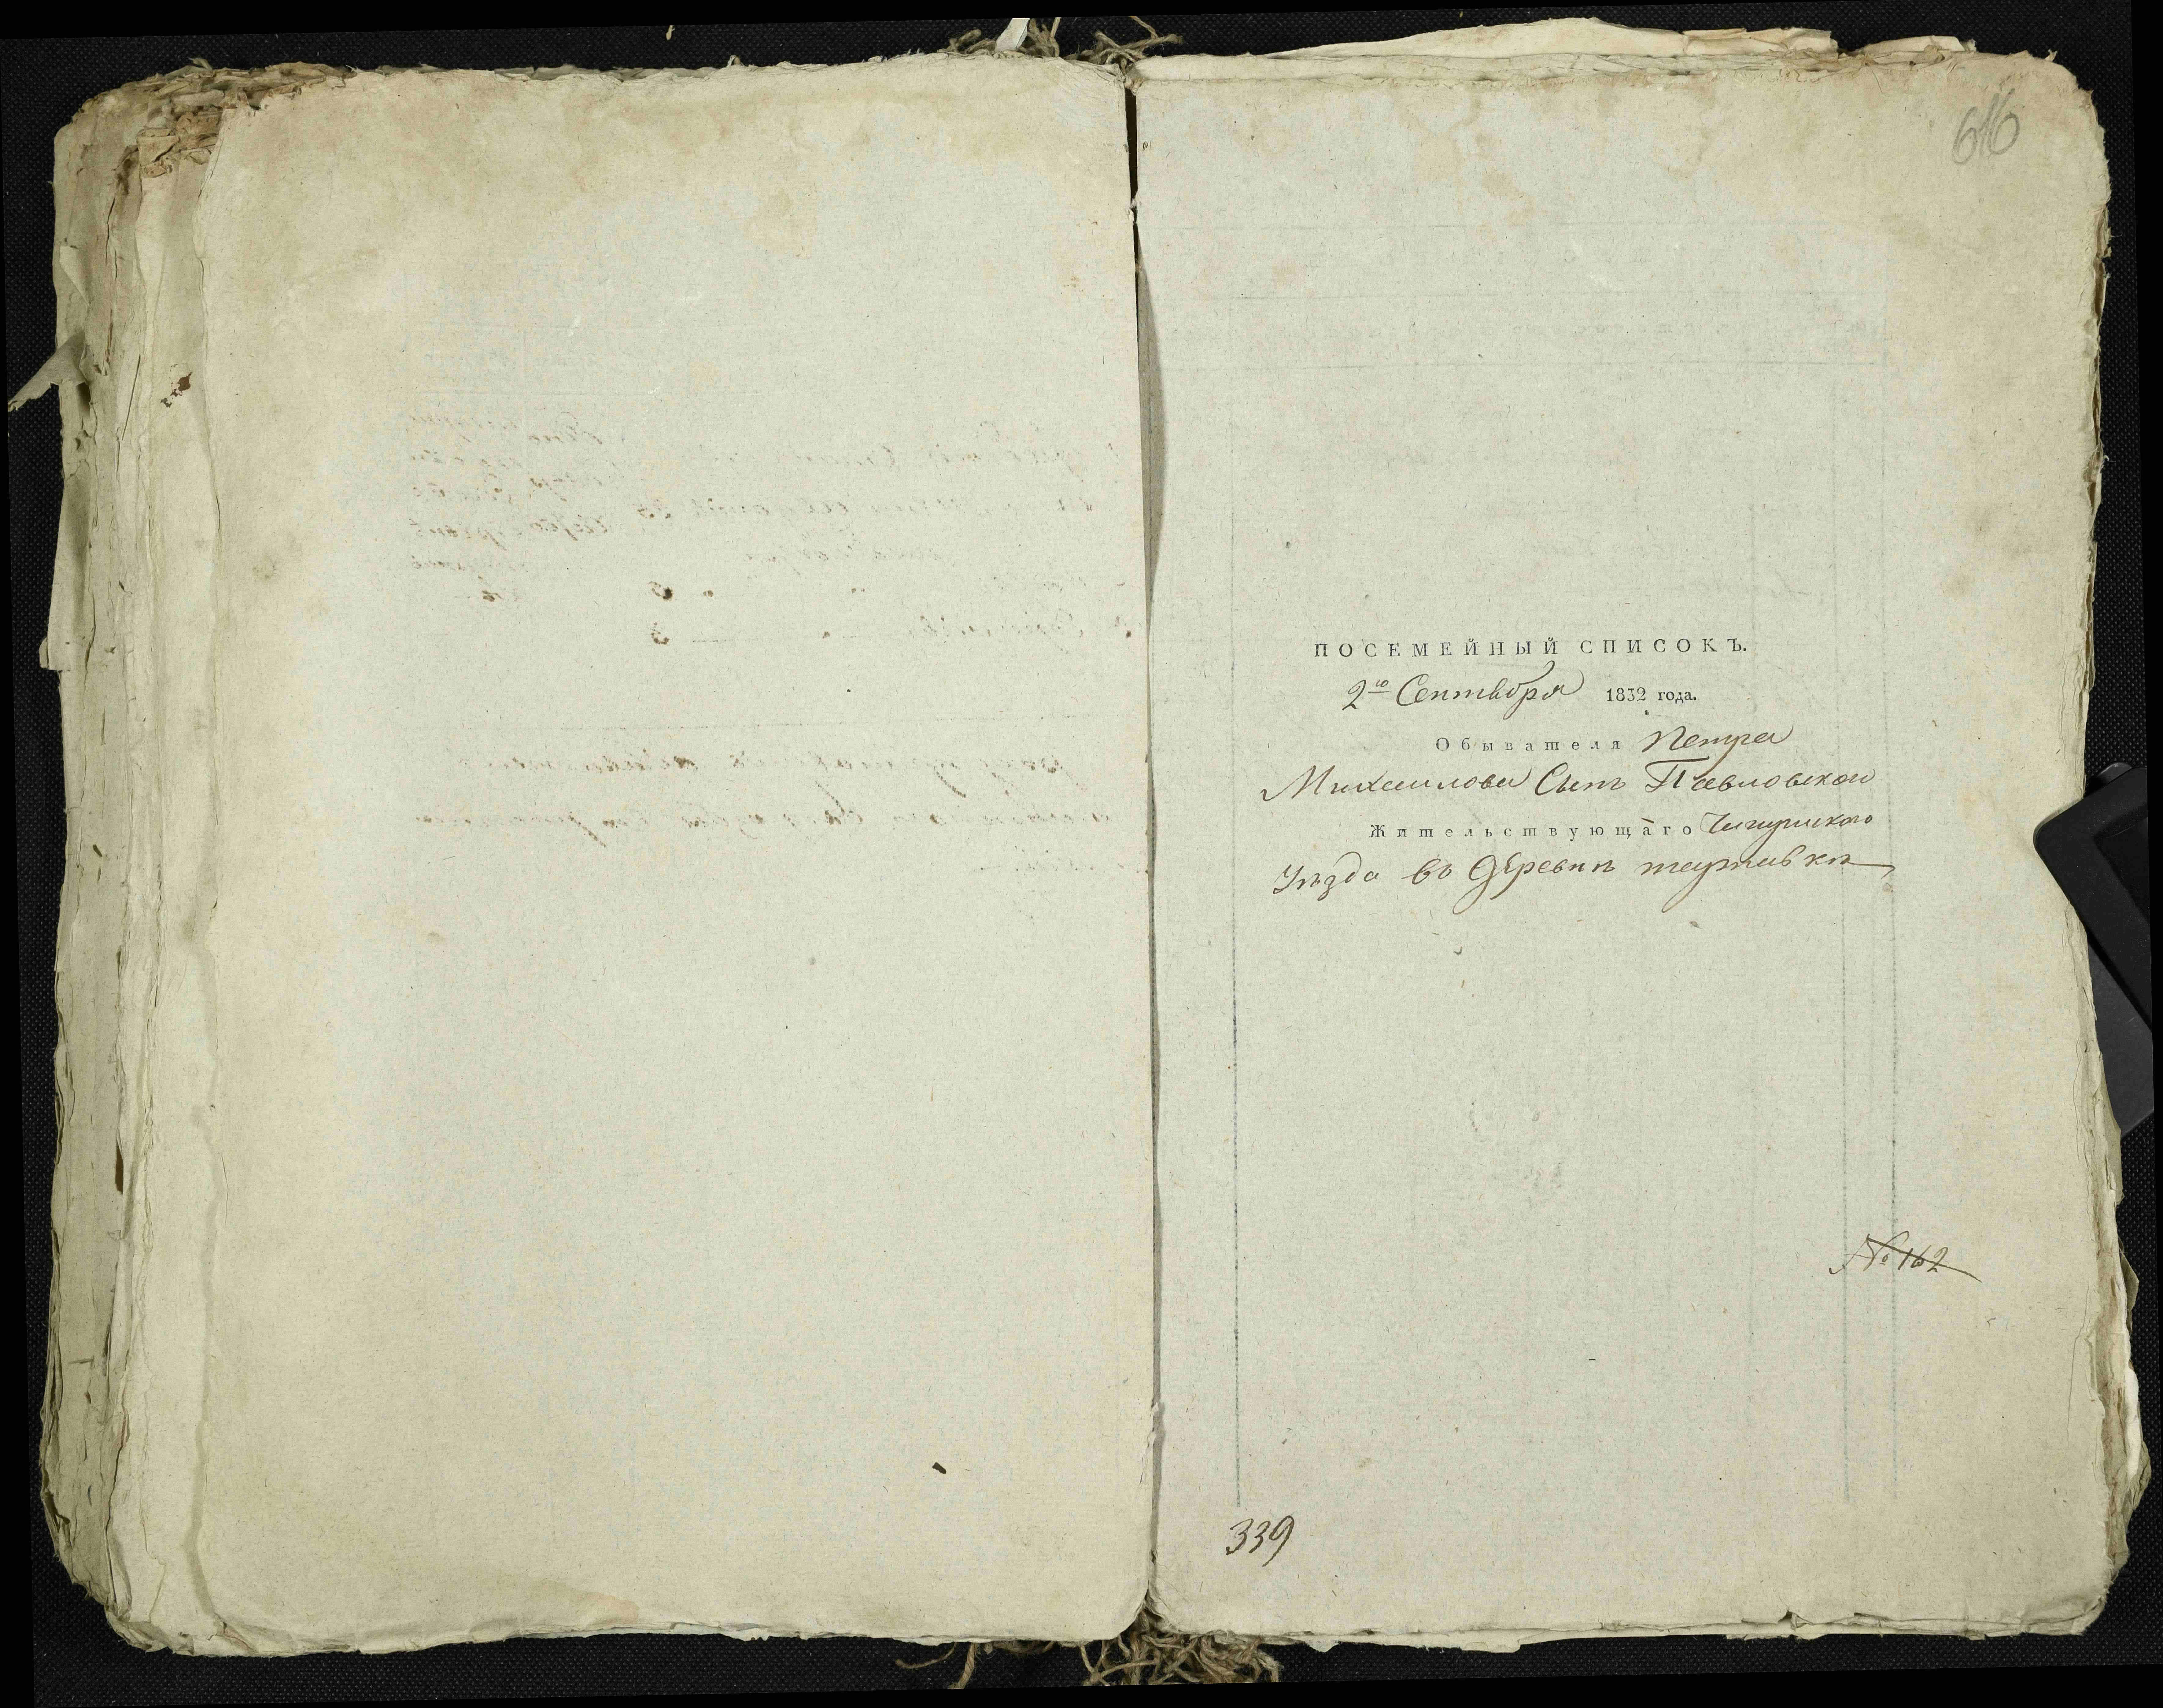 616
ПОСЕМЕЙНЫЙ СПИСОКЪ.
2го Сентября 1832 года.
Обывателя Петра
Михаилова Сынъ Павловскаго
Жительствующаго Чигиринскаго
Уѣзда въ деревнѣ
№ 162
339